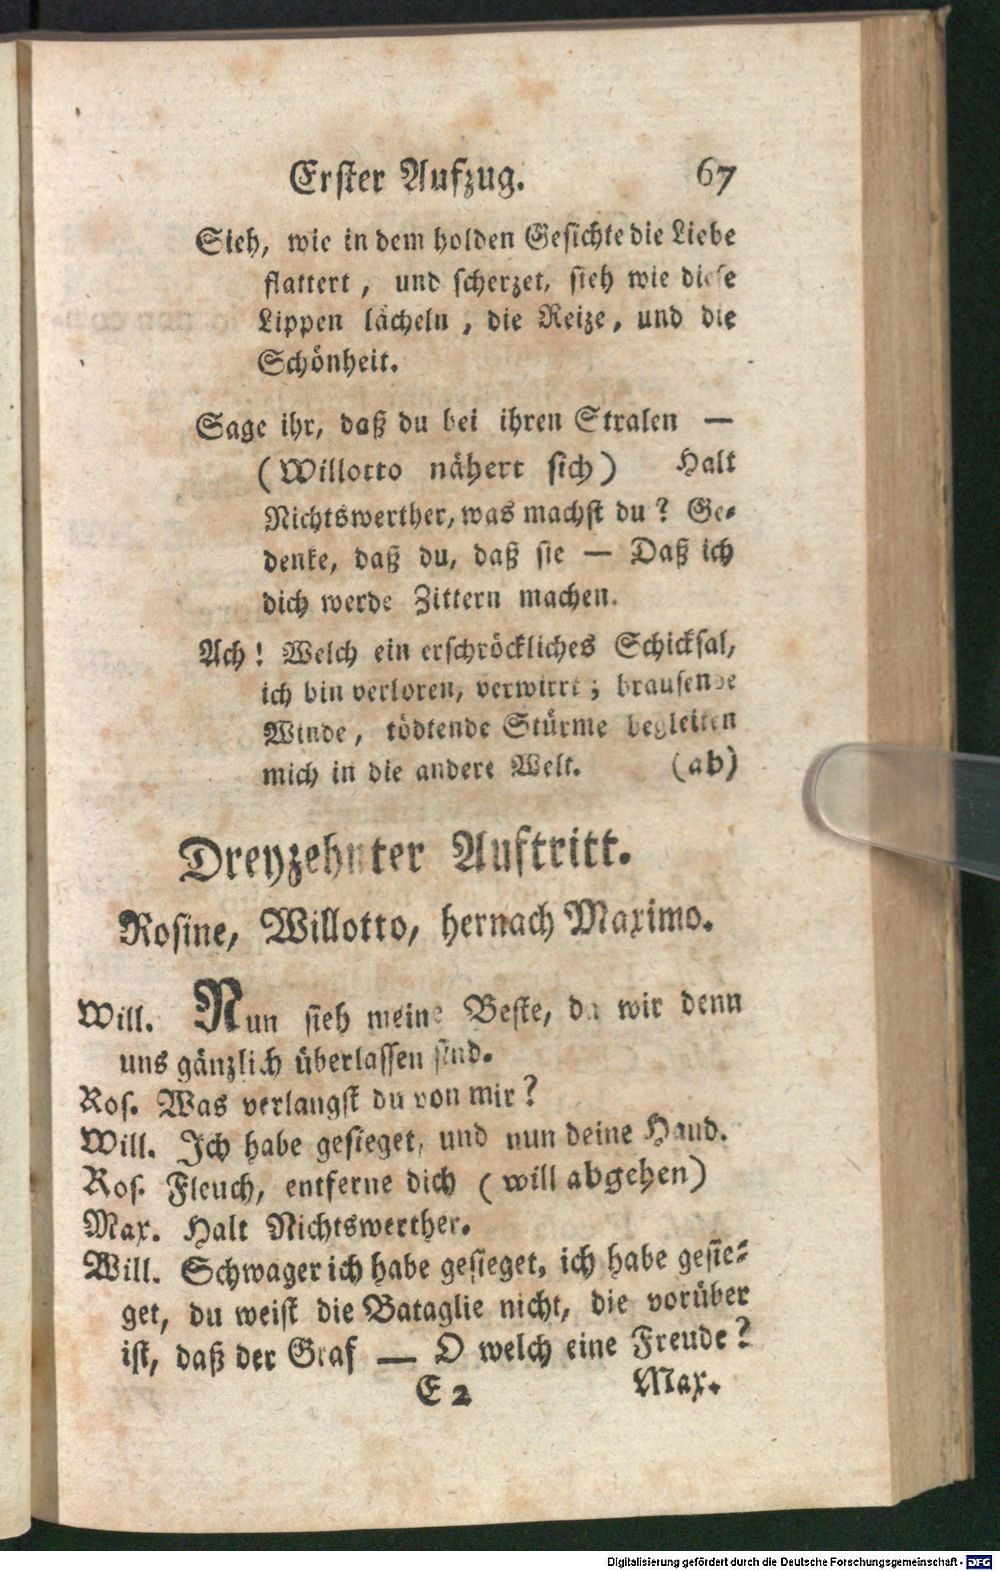 Erster Aufzug. 67
Sieh, wie in dem holden Gesichte die Liebe
flattert, und scherzet, sieh wie diese
Lippen lächeln, die Reize, und die
Schönheit.
Sage ihr, daß du bei ihren Stralen —
(Willotto nähert sich) Halt
Nichtswerther, was machst du? Ge-
denke, daß du, daß sie — Daß ich
dich werde Zittern machen.
Ach! Welch ein erschröckliches Schicksal,
ich bin verloren, verwirrt; brausende
Winde, tödtende Stürme begleiten
mich in die andere Welt. (ab)
Dreyzehnter Auftritt.
Rosine, Willotto, hernach Maximo.
Will. Nun sieh meine Beste, da wir denn
uns gänzlich überlassen sind.
Ros. Was verlangst du von mir?
Will. Ich habe gesieget, und nun deine Hand.
Ros. Fleuch, entferne dich (will abgehen)
Max. Halt Nichtswerther.
Will. Schwager ich habe gesieget, ich habe gesie-
get, du weist die Bataglie nicht, die vorüber
ist, daß der Graf — O welch eine Freude?
E 2 Max.
Digitalisierung gefördert durch die Deutsche Forschungsgemeinschaft - DFG